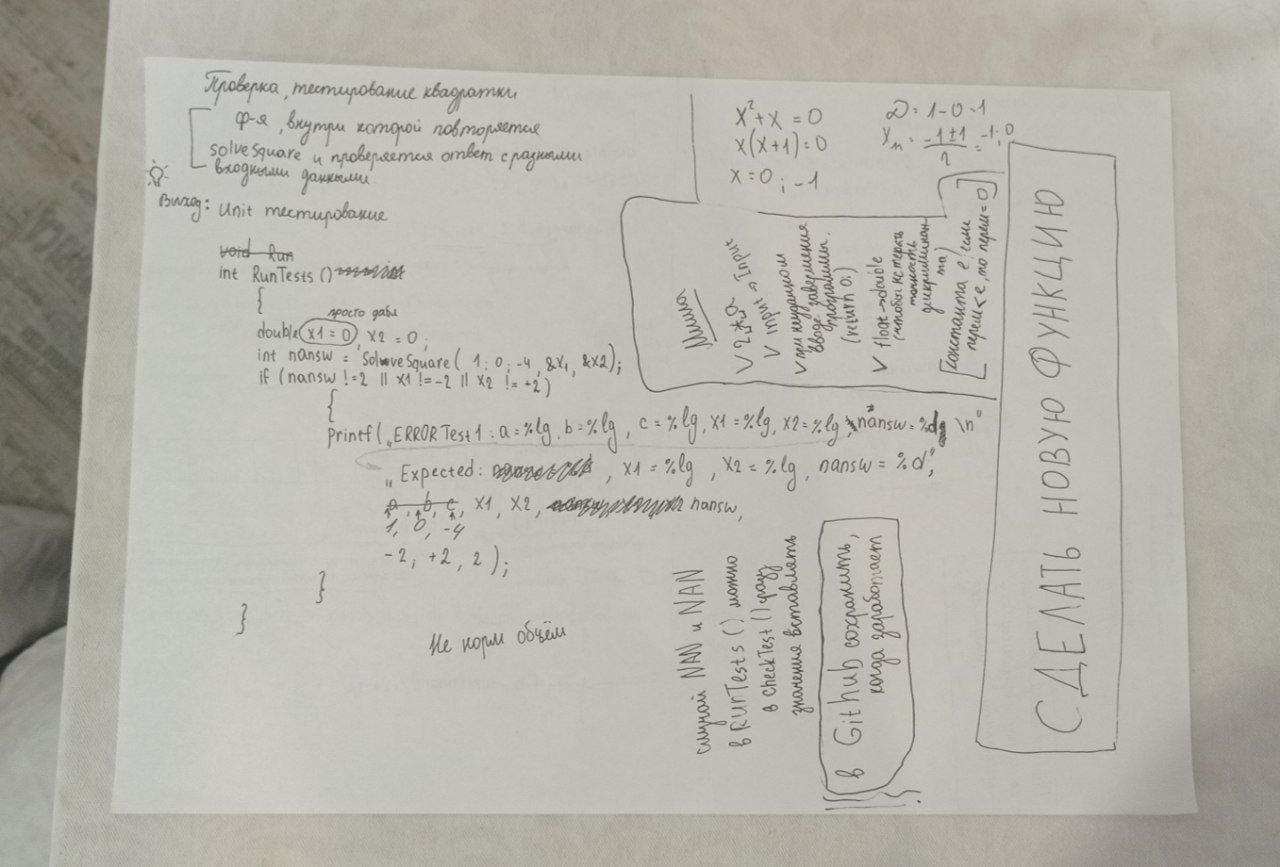 Проверка, тестирование квадратки
ф-я, внутри которой повторяется
solveSquare и проверяется ответ с разными
входными данными.
Выход: Unit тестирование
void Run
int RunTests ()
{
просто дабл
double x1 = 0, x2 = 0;
int nansw = SolveSquare( 1; 0; -4, &x1, &x2);
if (nansw != 2 || x1 != -2 || x2 != +2)
{
printf( "ERROR Test1 : a = %lg, b = %lg, c = %lg, x1 = %lg, x2 = %lg, nansw = %d \n"
"Expected: , x1 = %lg, x2 = %lg, nansw = %d",
a, b, c, x1, x2, nansw,
1, 0, -4
-2; +2, 2 );
}
}
Не норм объём
x² + x = 0
x(x+1) = 0
x = 0; -1
D = 1 - 0 = 1
= -1 ± 1 / 2 = -1; 0
V Input → Input
V при неудачном
вводе завершения
программы.
(return 0;)
V float → double
(чтобы не терять
точность
дискриминан
та)
[константа e: если
перем < e, то перем = 0]
случай NAN и NAN
в RunTests () можно
в checkTest () сразу
значения вставлять
в GitHub сохранить,
когда заработает
СДЕЛАТЬ НОВУЮ ФУНКЦИЮ